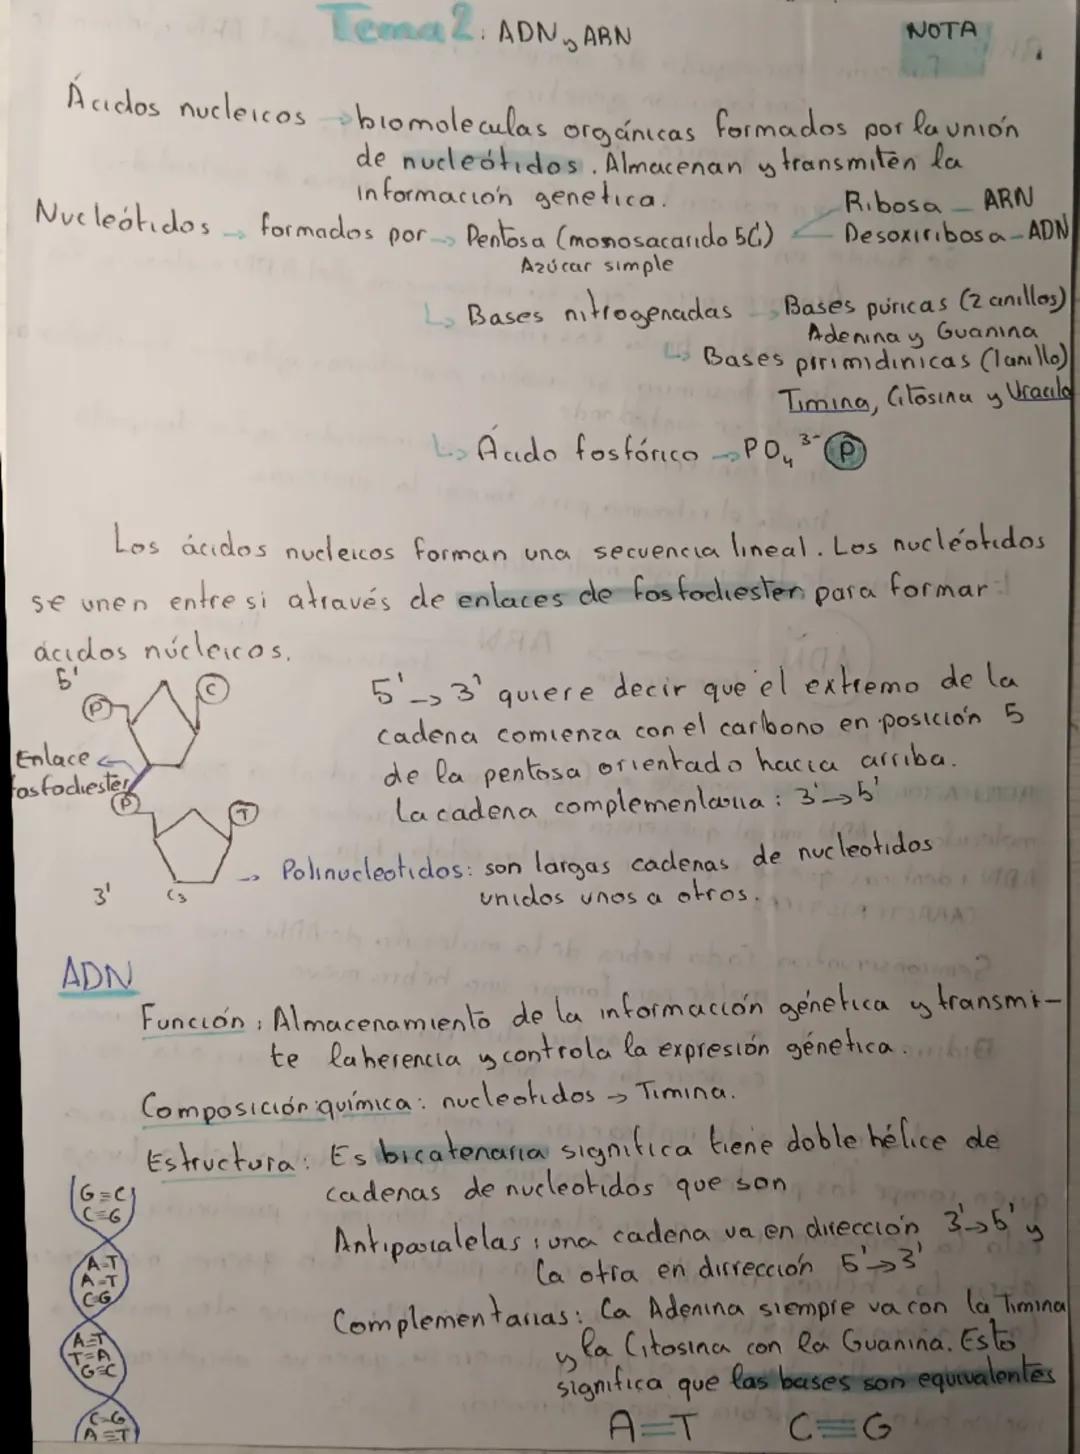 Tema 2: ADN y ARN
NOTA
Ácidos nucleicos → biomoleculas orgánicas formados por la unión
de nucleótidos. Almacenan y transmiten la
información genetica.
Nucleótidos → formados por → Pentosa (monosacarido 5C)
Azúcar simple
Ribosa - ARN
Desoxiribosa - ADN
↳ Bases nitrogenadas → Bases púricas (2 anillos)
Adenina y Guanina
↳ Bases pirimidinicas (1 anillo)
Timina, Citosina y Uracilo
↳ Ácido fosfórico → PO₄³⁻ P
Los ácidos nucleicos forman una secuencia lineal. Los nucleótidos
se unen entre si através de enlaces de fosfodiester para formar
ácidos núcleicos.
5'
P
C
Enlace
fosfodiester
P
T
3'
C3
5' → 3' quiere decir que el extremo de la
cadena comienza con el carbono en posición 5
de la pentosa orientado hacia arriba.
La cadena complementaria: 3' → 5'
→ Polinucleotidos: son largas cadenas de nucleotidos
unidos unos a otros.
ADN
Función: Almacenamiento de la información génetica y transmi-
te la herencia y controla la expresión génetica.
Composición química: nucleotidos → Timina.
Estructura: Es bicatenaria significa tiene doble hélice de
cadenas de nucleotidos que son
Antiparalelas: una cadena va en dirección 3' → 5' y
la otra en dirrección 5' → 3'
Complementarias: La Adenina siempre va con la Timina
y la Citosina con la Guanina. Esto
significa que las bases son equivalentes
A=T C≡G
G≡C
C≡G
A=T
A=T
C≡G
A=T
T=A
G≡C
C≡G
A=T